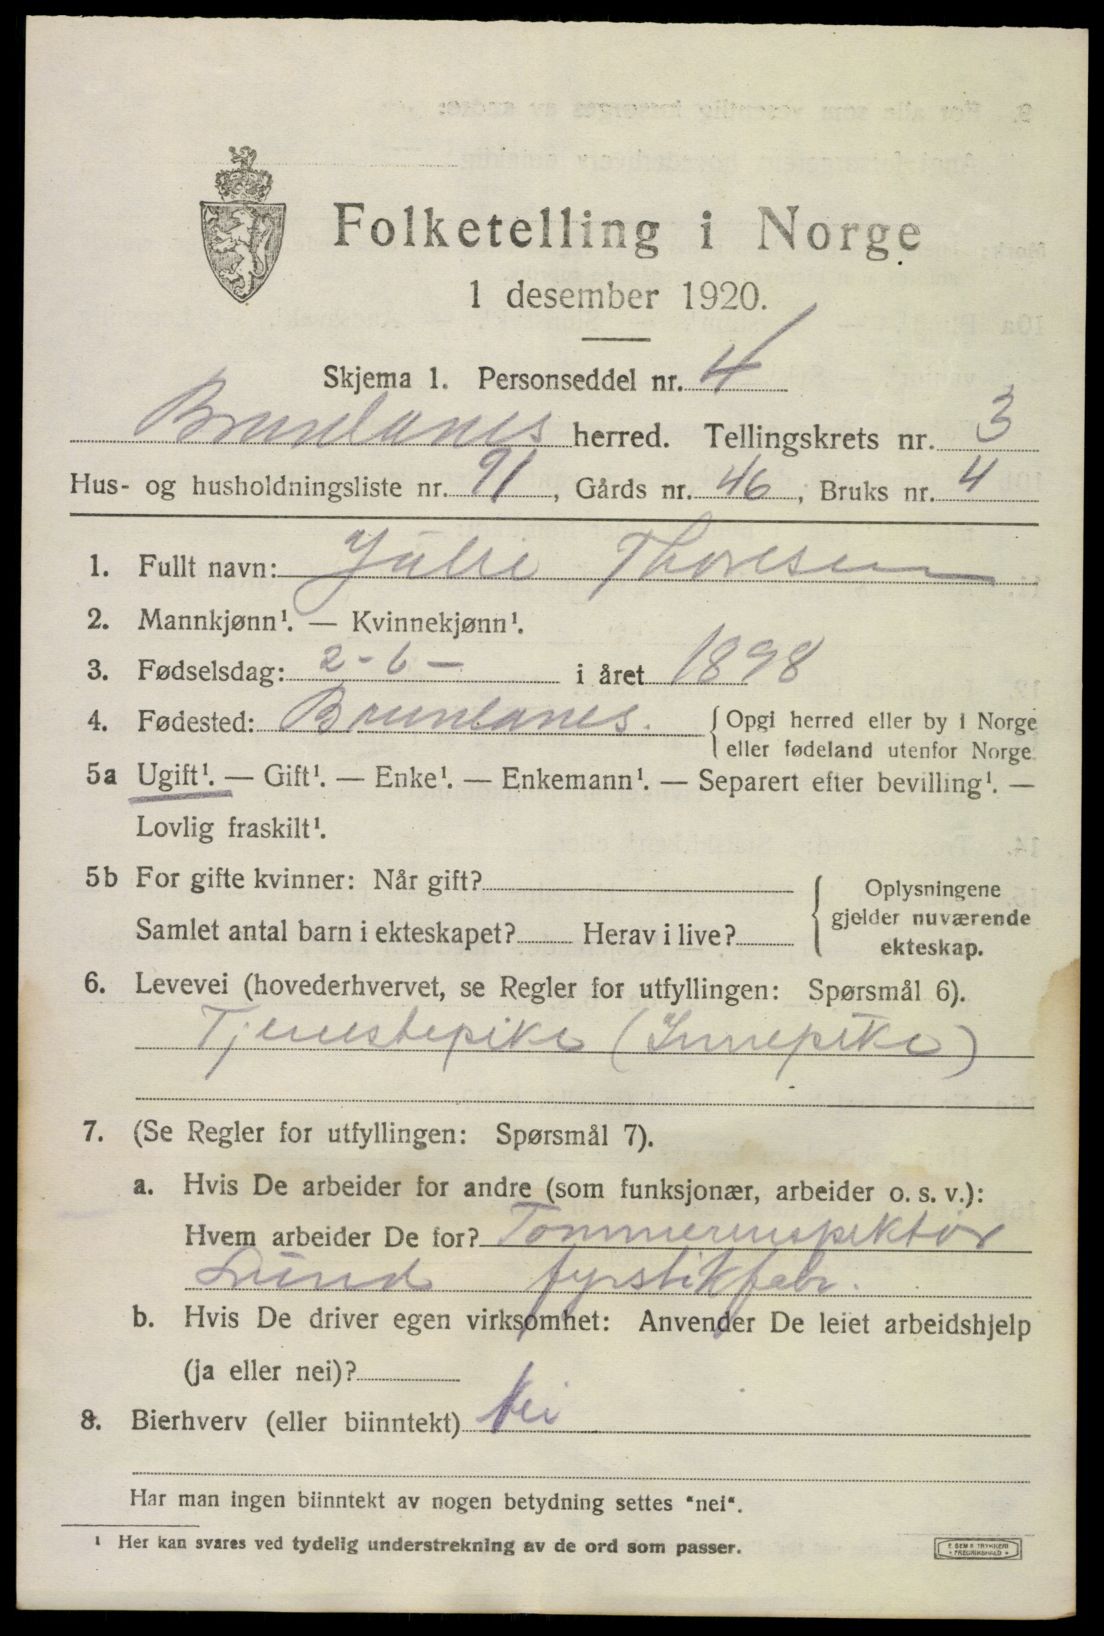 Folketelling i Norge
1 desember 1920.
Skjema 1. Personseddel nr. 4
Brunlanes herred. Tellingskrets nr. 3
Hus- og husholdningsliste nr. 91, Gårds nr. 46, Bruks nr. 4
1. Fullt navn: Julie Thoresen
2. Mannkjønn¹. — Kvinnekjønn¹.
3. Fødselsdag: 2-6- i året 1898
4. Fødested: Brunlanes. {Opgi herred eller by i Norge
eller fødeland utenfor Norge
5a Ugift¹. — Gift¹. — Enke¹. — Enkemann¹. — Separert efter bevilling¹. —
Lovlig fraskilt¹.
5b For gifte kvinner: Når gift?
Samlet antal barn i ekteskapet? Herav i live?
{ Oplysningene
gjelder nuværende
ekteskap.
6. Levevei (hovederhvervet, se Regler for utfyllingen: Spørsmål 6).
Tjenestepike (Innepike)
7. (Se Regler for utfyllingen: Spørsmål 7).
a. Hvis De arbeider for andre (som funksjonær, arbeider o. s. v.):
Hvem arbeider De for? Tømmerinspektør
Lund fyrstikfabr.
b. Hvis De driver egen virksomhet: Anvender De leiet arbeidshjelp
(ja eller nei)?
8. Bierhverv (eller biinntekt) Nei
Har man ingen biinntekt av nogen betydning settes "nei".
¹ Her kan svares ved tydelig understrekning av de ord som passer.
E. SEM'S TRYKKERI
FREDRIKSHALD